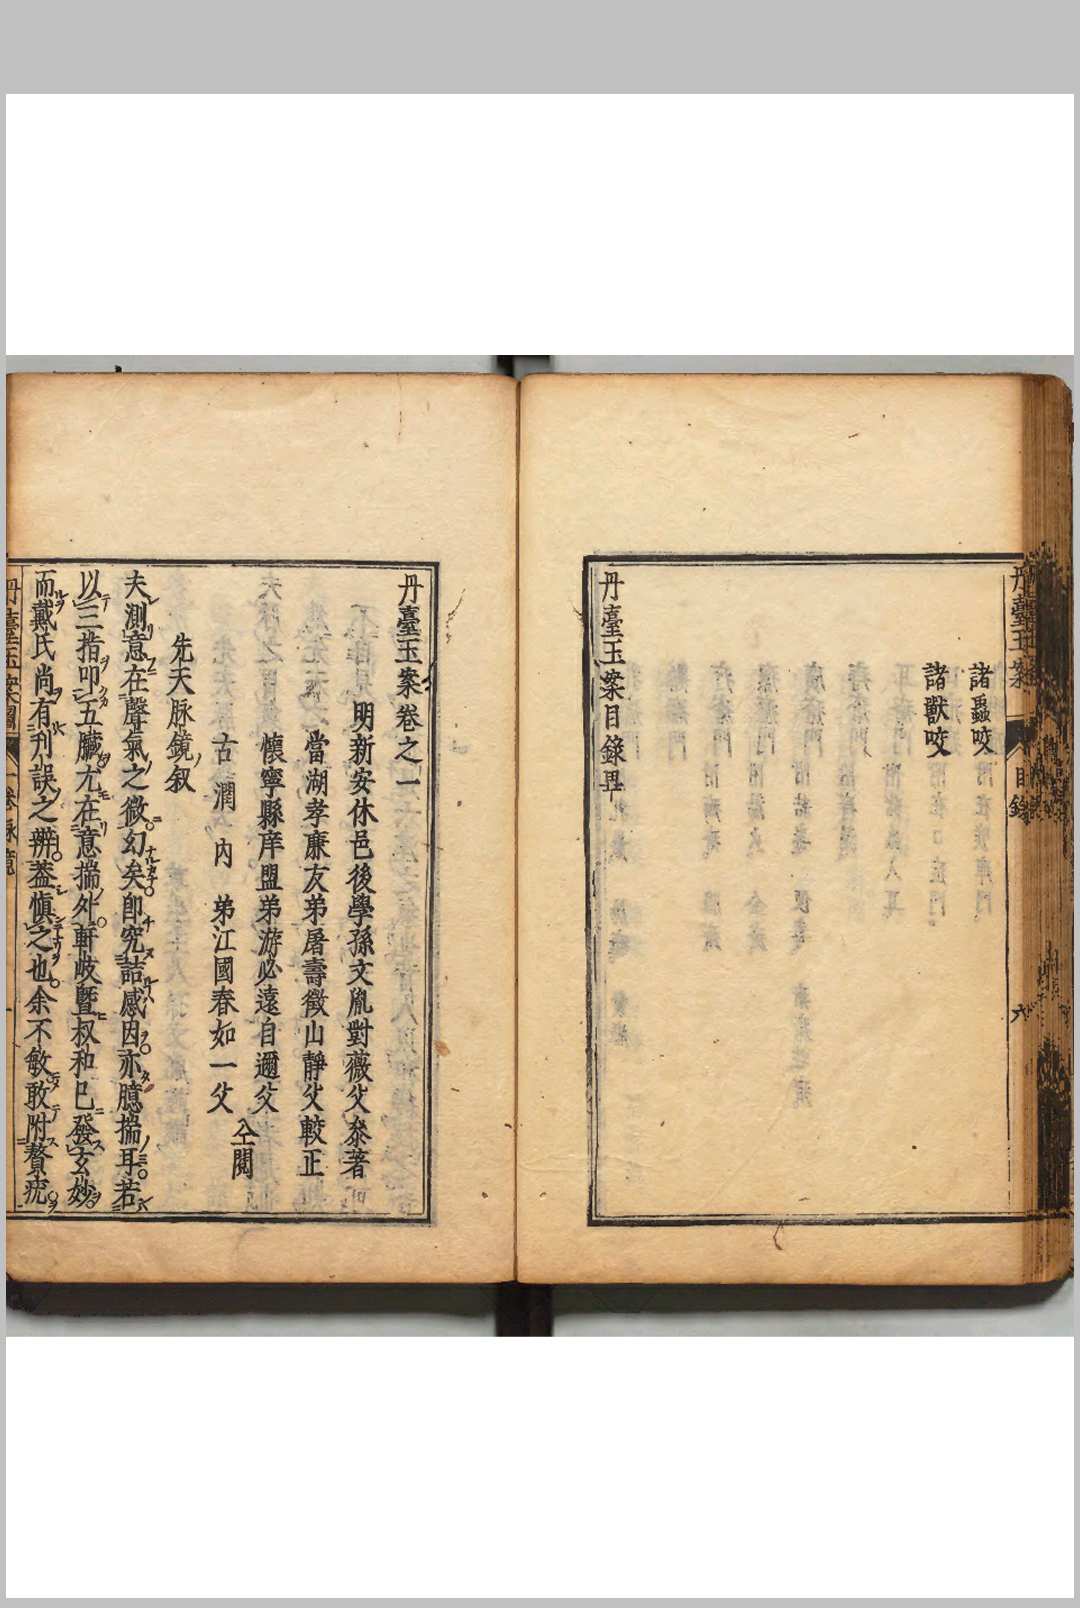 丹臺玉案
目錄
六
諸蟲咬
諸獸咬
丹臺玉案目錄畢
丹臺玉案卷之一
明新安休邑後學孫文胤對薇父叅著
當湖孝廉友弟屠壽徵山靜父較正
懷寧縣庠盟弟游必遠自邇父
古潤內弟江國春如一父
仝閱
先天脉鏡叙
夫測意在聲氣之微幻矣卽究詰感因亦臆揣耳若
以三指叩五臟尤在意揣外軒岐曁叔和已發玄妙
而戴氏尚有刋誤之辨蓋愼之也余不敏敢附贅疣